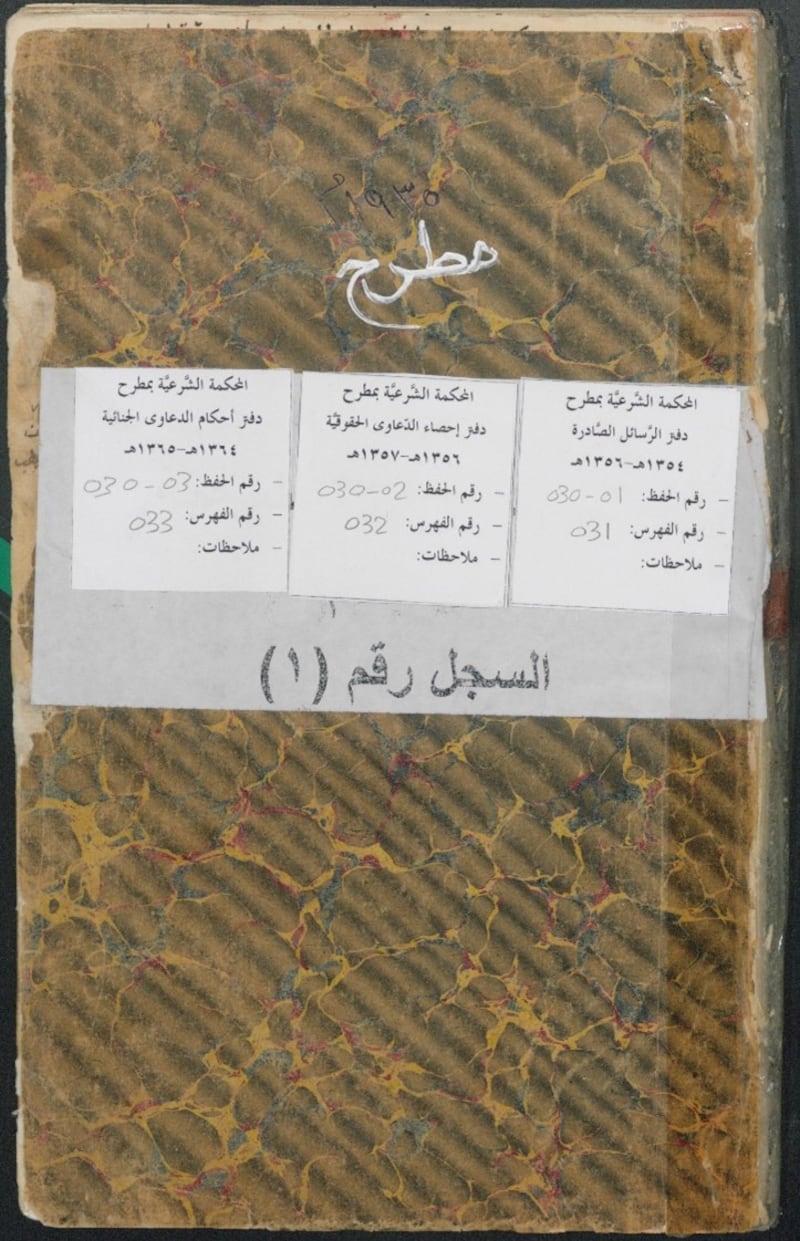 ١٩٣٥م
مطرح
المحكمة الشَّرعيَّة بمطرح
دفتر الرَّسائل الصَّادرة
١٣٥٤هـ-١٣٥٦هـ
- رقم الحفظ: 030-01
- رقم الفهرس: 031
- ملاحظات:
المحكمة الشَّرعيَّة بمطرح
دفتر إحصاء الدّعاوى الحقوقيَّة
١٣٥٦هـ-١٣٥٧هـ
- رقم الحفظ: 030-02
- رقم الفهرس: 032
- ملاحظات:
المحكمة الشَّرعيَّة بمطرح
دفتر أحكام الدعاوى الجنائية
١٣٦٤هـ-١٣٦٥هـ
- رقم الحفظ: 030-03
- رقم الفهرس: 033
- ملاحظات:
السجل رقم (١)